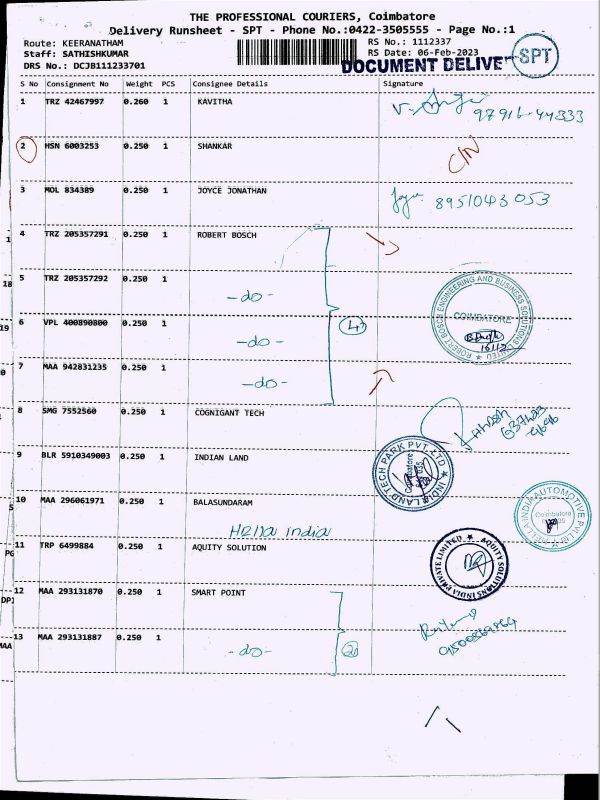 THE PROFESSIONAL COURIERS, Coimbatore
Delivery Runsheet - SPT - Phone No.:0422-3505555 - Page No.:1
Route: KEERANATHAM
RS No.: 1112337
Staff: SATHISHKUMAR
RS Date: 06-Feb-2023
DRS No.: DCJB111233701
DOCUMENT DELIVE
SPT
S No Consignment No Weight PCS Consignee Details Signature
1 TRZ 42467997 0.260 1 KAVITHA
97916-44333
2 HSN 6003253 0.250 1 SHANKAR
C/N
3 MOL 834389 0.250 1 JOYCE JONATHAN
8951043053
4 TRZ 205357291 0.250 1 ROBERT BOSCH
5 TRZ 205357292 0.250 1
-do-
6 VPL 400890800 0.250 1
-do-
7 MAA 942831235 0.250 1
-do-
ROBERT BOSCH ENGINEERING AND BUSINESS SOLUTIONS LIMITED
COIMBATORE
8 SMG 7552560 0.250 1 COGNIGANT TECH
9 BLR 5910349003 0.250 1 INDIAN LAND
INDIA LAND TECH PARK PVT. LTD
Coimbatore
10 MAA 296061971 0.250 1 BALASUNDARAM
Hella india
HELLA INDIA AUTOMOTIVE PVT LTD
Coimbatore
11 TRP 6499884 0.250 1 AQUITY SOLUTION
AQUITY SOLUTIONS INDIA PRIVATE LIMITED
12 MAA 293131870 0.250 1 SMART POINT
13 MAA 293131887 0.250 1
-do-